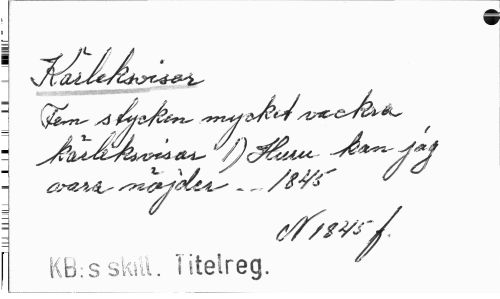 Kärleksvisor
Fem stycken mycket vackra
kärleksvisor 1) Huru kan jag
vara nöjder... 1845
N 1845 f.
KB:s skill. Titelreg.